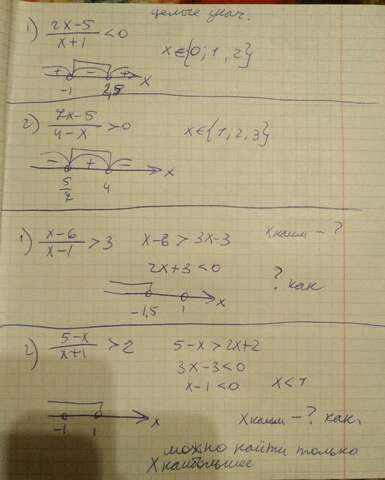 целые знач.
1) (2x-5)/(x+1) < 0
x ∈ {0; 1, 2}
+ - +
-1 2,5 x
2) (7x-5)/(4-x) > 0
x ∈ {1; 2, 3}
- + -
5/7 4 x
1) (x-6)/(x-1) > 3 x-6 > 3x-3 x наим - ?
2x+3 < 0
? как
-1,5 1 x
2) (5-x)/(x+1) > 2 5-x > 2x+2
3x-3 < 0
x-1 < 0 x < 1
-1 1 x
x наим - ? как.
можно найти только
x наибольшее